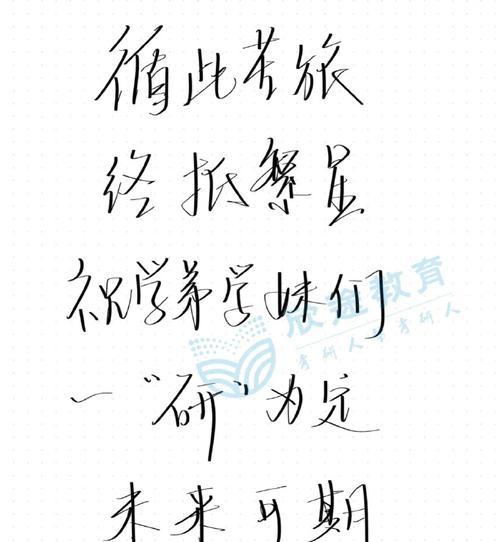 循此苦旅
终抵繁星
祝学弟学妹们
一“研”为定
未来可期
欣途教育
考研人帮考研人